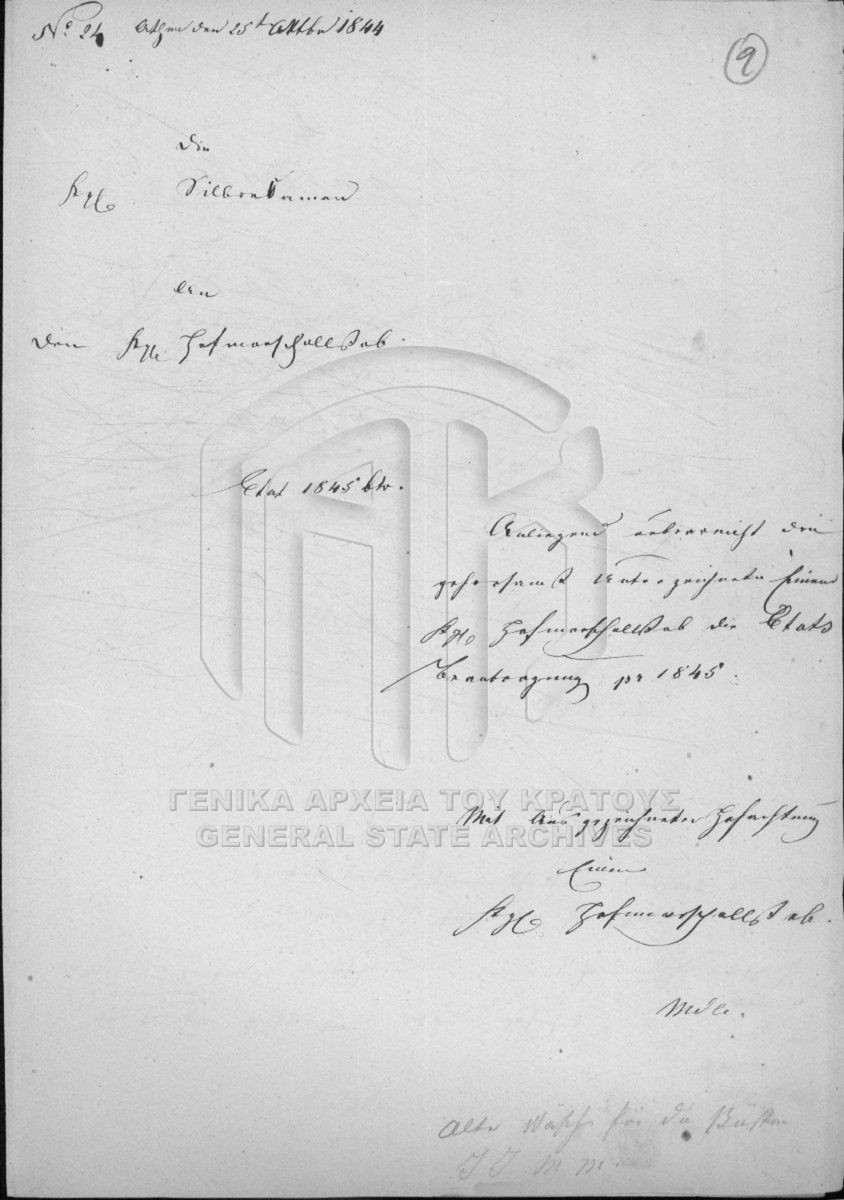 No 24 Athen den 25t Oktbr 1844
9
Die
Kgl. Silberkamer
An
den Kgl. Hofmarschallstab.
Etat 1845 btr.
Anliegend ueberreicht der
gehorsamst Unterzeichnete Einem
Kgl. Hofmarschallstab die Etats
Beantragung pr 1845.
ΓΕΝΙΚΑ ΑΡΧΕΙΑ ΤΟΥ ΚΡΑΤΟΥΣ
GENERAL STATE ARCHIVES
Mit Ausgezeichneter Hochachtung
Einem
Kgl. Hofmarschallstab.
Alte Wäsche für die